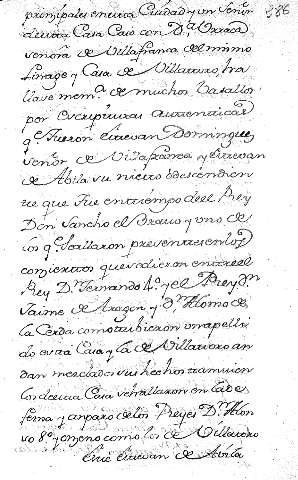 386
principales en esta Ciudad y un Señor
de esta Casa Caso con D.ª Urraca
señora de Villafranca del mismo
Linage y Casa de Villatoro ha
llase mem.ª de muchos Vasallos
por escripturas autenticas
q.e fueron estevan Domingues
señor de Villafranca y estevan
de Abila su nieto o descendien
te que fue en tiempo del Rey
Don Sancho el Bravo y uno de
los q.e se allaron presentes en los
conciertos que se dieron entre el
Rey D.n Fernando 4.º y el Rey d.n
Jaime de Aragon y d.n Alonso de
la Cerda como tubieron un apelli
do esta Casa y la de Villatoro an
dan mezclados sus hechos tamvien
los de una Casa se hallaron en la de
fensa y amparo de los Reyes D.n Alon
so 8.º y onceno como los de Villatoro
este estevan de Avila